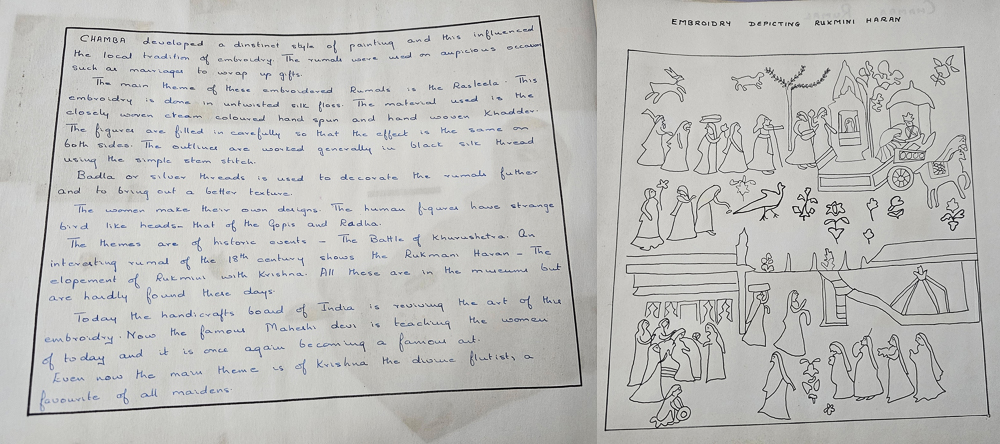 CHAMBA developed a dinstinet style of painting and this influenced
the local tradition of embroidry. The rumals were used on aupicious occasion
such as marriages to wrap up gifts.
The main theme of these embroidered Rumals is the Rasleela. This
embroidry is done in untwisted silk floss. The material used is the
closely woven cream coloured hand spun and hand woven Khaddar.
The figures are filled in carefully so that the effect is the same on
both sides. The outlines are worked generally in black silk thread
using the simple stem stitch.
Badla or silver threads is used to decorate the rumals futher
and to bring out a better texture.
The women make their own designs. The human figures have strange
bird like heads - that of the Gopis and Radha.
The themes are of historic events - The Battle of Khurushetra. An
interesting rumal of the 18th century shows the Rukmani Haran - The
elopement of Rukmini with Krishna. All these are in the museums but
are hardly found these days.
Today the handicrafts board of India is reviving the art of this
embroidry. Now the famous Maheshi devi is teaching the women
of today and it is once again becoming a famous art.
Even now the main theme is of Krishna the divine flutist, a
favourite of all maidens.
EMBROIDRY DEPICTING RUKMINI HARAN